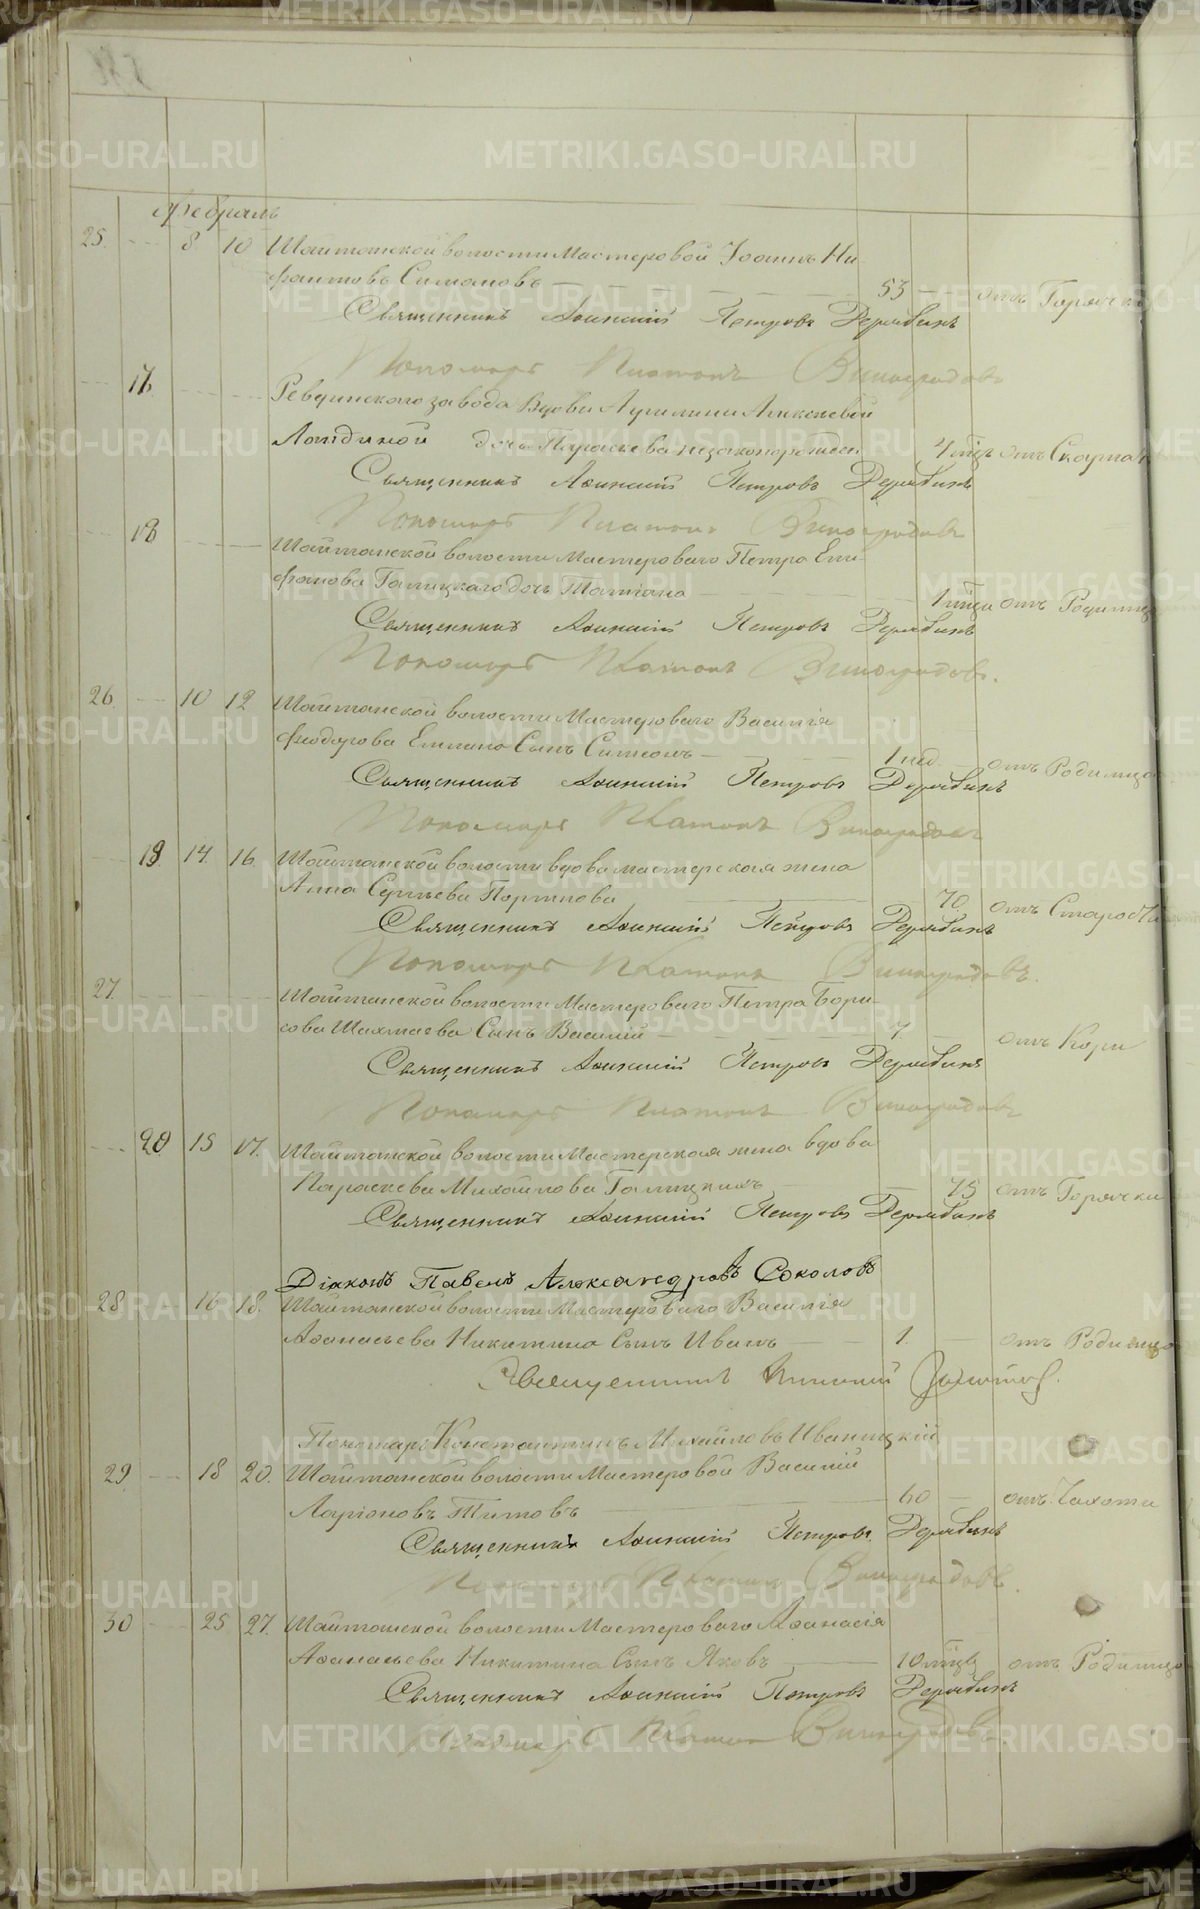 Февраль
25. 8. 10 Шайтанской волости Мастеровой Іоаннъ Ни
фантовъ Симановъ 53 отъ Горячк
Священникъ Аѳинкій Петровъ Дерябинъ
Пономарь Платонъ Виноградовъ
17. Ревдинскаго завода Вдовы Акилины Алексѣевой
дочь Параскева незаконорожден 4 мѣц отъ Скарла
Священникъ Петровъ Дерябинъ
Пономарь Платонъ Виноградовъ
18 Шайтанской волости Мастероваго Петра Епи
фанова Галицкаго дочь Татіана 1 мѣц отъ Родимца
Священникъ Петровъ Дерябинъ
Пономарь Платонъ Виноградовъ.
26. 10 12 Шайтанской волости Мастероваго Василія
Феодорова Сынъ Симеонъ 1 нед. отъ Родимца
Священникъ Петровъ Дерябинъ
Пономарь Платонъ Виноградовъ
19. 14. 16. Шайтанской волости вдова мастерская жена
Анна Сергѣева 70 отъ Старости
Священникъ Петровъ Дерябинъ
Пономарь Платонъ Виноградовъ.
27. Шайтанской волости Мастероваго Петра Бори
сова Шахмаева Сынъ Василій 7. отъ Кори
Священникъ Петровъ Дерябинъ
Пономарь Платонъ Виноградовъ
20. 15 17. Шайтанской волости Мастерская жена вдова
Параскева Михайлова Галицкихъ 75 отъ Горячки
Священникъ Петровъ Дерябинъ
Діаконъ Павелъ Александровъ Соколовъ
28. 16 18. Шайтанской волости Мастероваго Василія
Аѳанасьева Никитина Сынъ Иванъ 1. отъ Родимца
Священникъ
Пономарь Константинъ Михайловъ Иваницкій
29. 18 20. Шайтанской волости Мастеровой Василій
Ларіоновъ Титовъ 60 отъ Чахоти
Священникъ Петровъ Дерябинъ
Пономарь Платонъ Виноградовъ.
30 25 27. Шайтанской волости Мастероваго Аѳанасія
Аѳанасьева Никитина Сынъ Яковъ 10 мѣц отъ Родимца
Священникъ Петровъ Дерябинъ
Пономарь Платонъ Виноградовъ.
METRIKI.GASO-URAL.RU